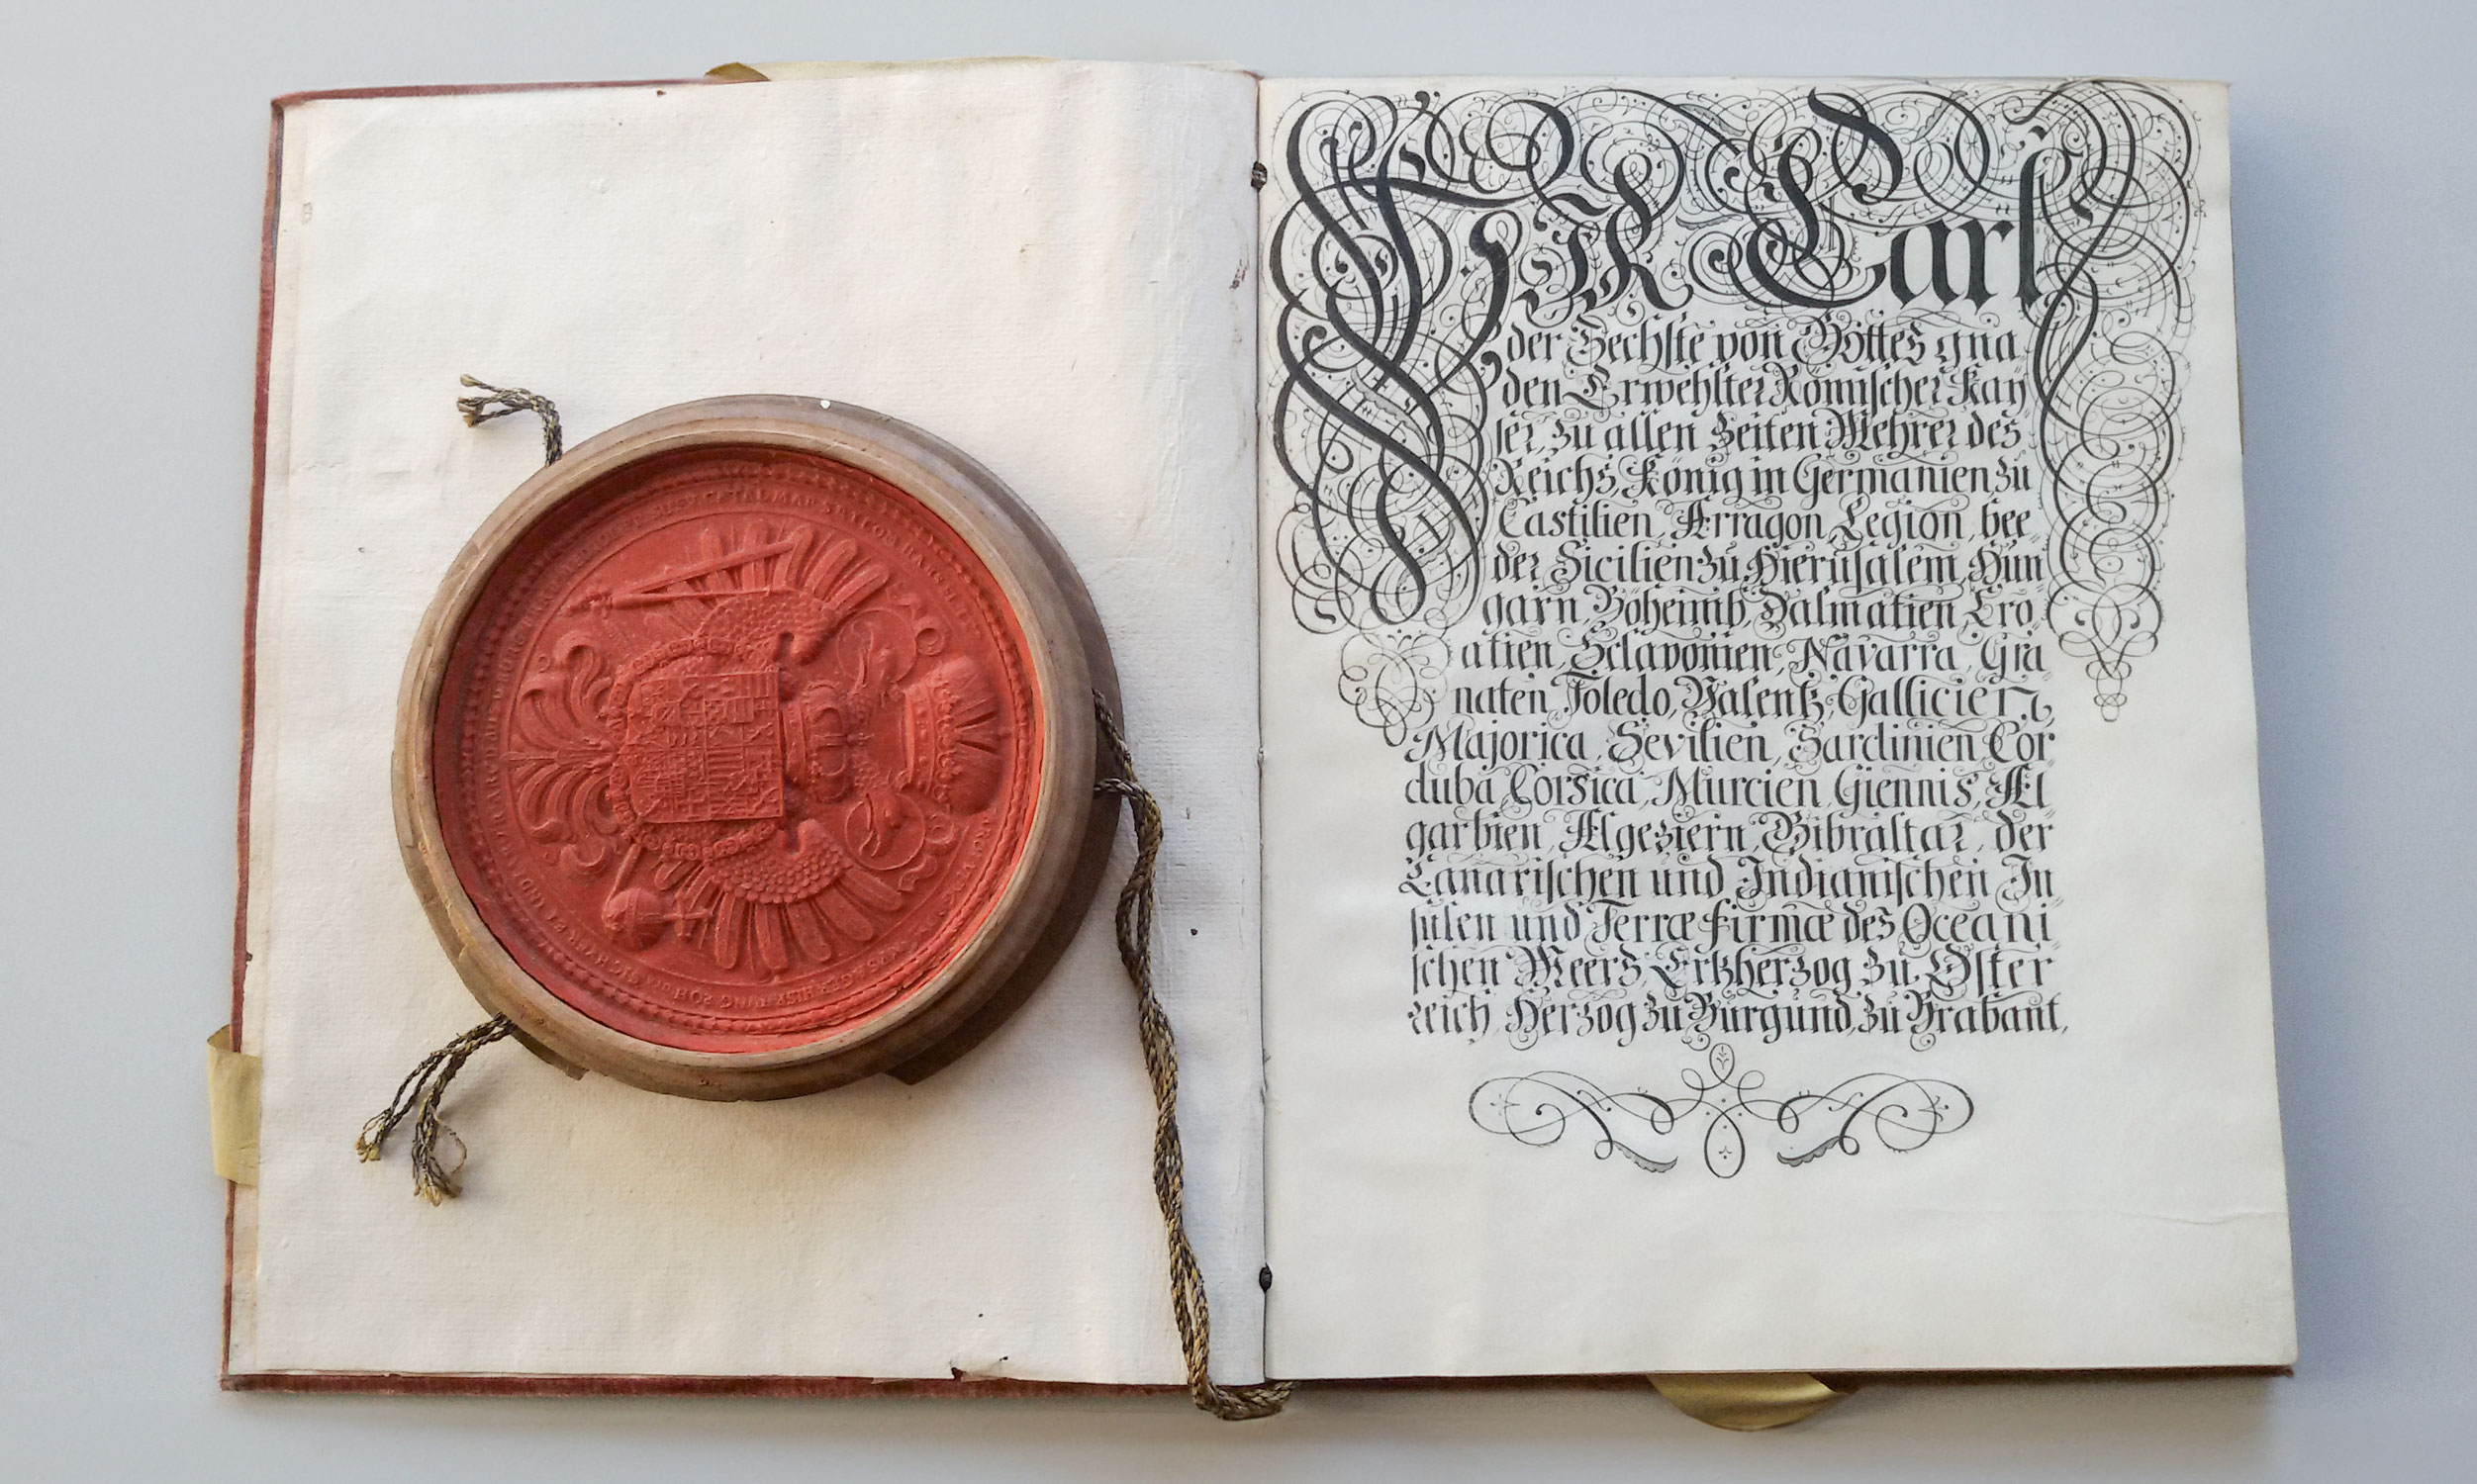 Wir Carl
der Sechste von Gottes gna
den Erwehlter Römischer Kay
ser, zu allen Zeiten Mehrer des
Reichs, König in Germanien zu
Castilien, Arragon, Legion, bee
der Sicilien zu Hierusalem, Hun
garn, Böheimb, Dalmatien, Cro
atien, Sclavonien, Navarra, Gra
naten, Toledo, Valentz, Gallicien,
Majorica, Sevilien, Sardinien, Cor
duba, Corsica, Murcien, Giennis, Al
garbien, Algeziern, Gibraltar, der
Canarischen und Indianischen In
sulen und Terræ firmæ des Oceani
schen Meers, Ertzherzog zu Öster
reich, Herzog zu Burgund, zu Brabant,